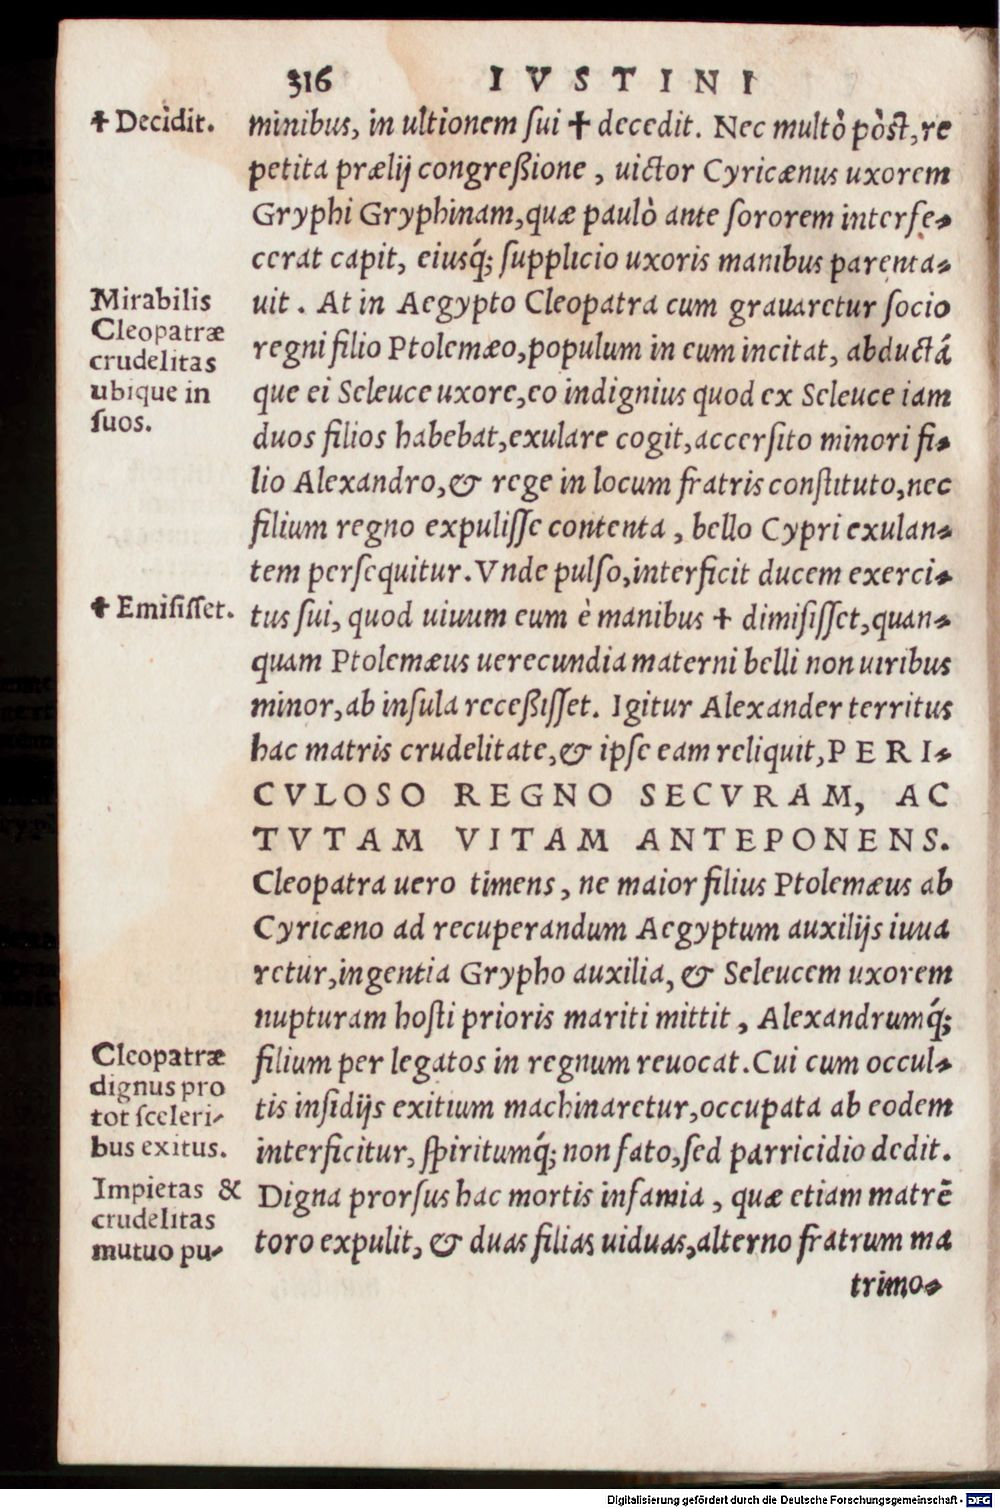 316 IVSTINI
✝ Decìdit.
minibus, in ultionem ſui ✝ decedit. Nec multò pòſt, re
petita prælij congreßione, uictor Cyricænus uxorem
Gryphi Gryphinam, quæ paulò ante ſororem interfe-
cerat capit, eiusq́; ſupplicio uxoris manibus parenta-
uit. At in Aegypto Cleopatra cum grauaretur ſocio
regni filio Ptolemæo, populum in eum incitat, abductá
que ei Seleuce uxore, eo indignius quod ex Seleuce iam
duos filios habebat, exulare cogit, accerſito minori fi-
lio Alexandro, & rege in locum fratris conſtituto, nec
filium regno expuliſſe contenta, bello Cypri exulan-
tem perſequitur. Vnde pulſo, interficit ducem exerci-
tus ſui, quod uiuum eum è manibus ✝ dimiſiſſet, quan-
quam Ptolemæus uerecundia materni belli non uiribus
minor, ab inſula receßiſſet. Igitur Alexander territus
hac matris crudelitate, & ipſe eam reliquit, PERI-
CVLOSO REGNO SECVRAM, AC
TVTAM VITAM ANTEPONENS.
Cleopatra uero timens, ne maior filius Ptolemæus ab
Cyricæno ad recuperandum Aegyptum auxilijs iuua
retur, ingentia Grypho auxilia, & Seleucem uxorem
nupturam hoſti prioris mariti mittit, Alexandrumq́;
filium per legatos in regnum reuocat. Cui cum occul-
tis inſidijs exitium machinaretur, occupata ab eodem
interficitur, ſpiritumq́; non fato, ſed parricidio dedit.
Digna prorſus hac mortis infamia, quæ etiam matrē
toro expulit, & duas filias uiduas, alterno fratrum ma
trimo-
Mirabilis
Cleopatræ
crudelitas
ubique in
ſuos.
✝ Emiſiſſet.
Cleopatræ
dignus pro
tot ſceleri-
bus exitus.
Impietas &
crudelitas
mutuo pu-
Digitalisierung gefördert durch die Deutsche Forschungsgemeinschaft - DFG